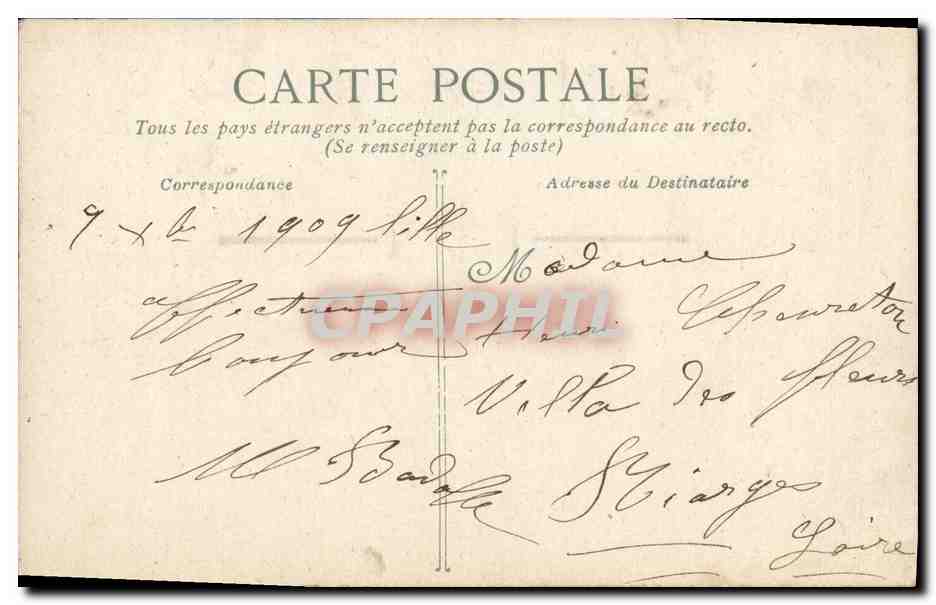 CARTE POSTALE
Tous les pays étrangers n'acceptent pas la correspondance au recto.
(Se renseigner à la poste)
Correspondance
9 Xbre 1909 Lille
affectueux
bonjour
Adresse du Destinataire
Madame
Henri Cheureton
Villa des fleurs
Loire
CPAPHIL